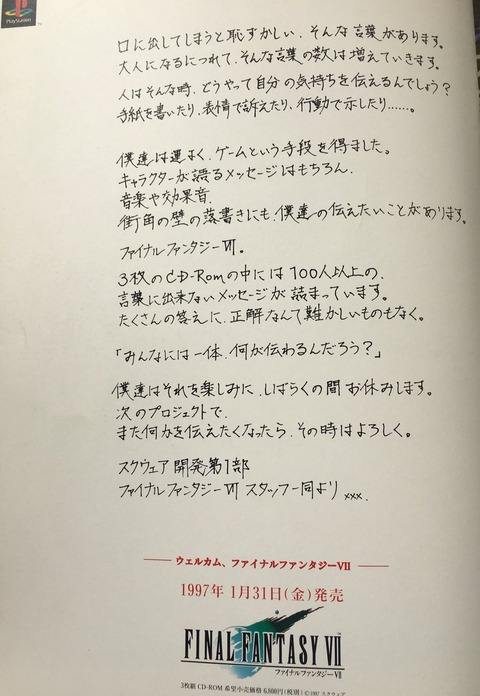 PlayStation
口に出してしまうと恥ずかしい、そんな言葉があります。
大人になるにつれて、そんな言葉の数は増えていきます。
人はそんな時、どうやって自分の気持ちを伝えるんでしょう?
手紙を書いたり、表情で訴えたり、行動で示したり……。
僕達は運よく、ゲームという手段を得ました。
キャラクターが語るメッセージはもちろん、
音楽や効果音、
街角の壁の落書きにも、僕達の伝えたいことがあります。
ファイナルファンタジーVII。
3枚のCD-Romの中には100人以上の、
言葉に出来ないメッセージが詰まっています。
たくさんの答えに、正解なんて難かしいものもなく。
「みんなには一体、何が伝わるんだろう?」
僕達はそれを楽しみに、しばらくの間お休みします。
次のプロジェクトで、
また何かを伝えたくなったら、その時はよろしく。
スクウェア開発第1部
ファイナルファンタジーVII スタッフ一同より xxx.
ウェルカム、ファイナルファンタジーVII
1997年 1月31日(金)発売
FINAL FANTASY VII
ファイナルファンタジーVII
3枚組 CD-ROM 希望小売価格 6,800円(税別) ©1997 スクウェア